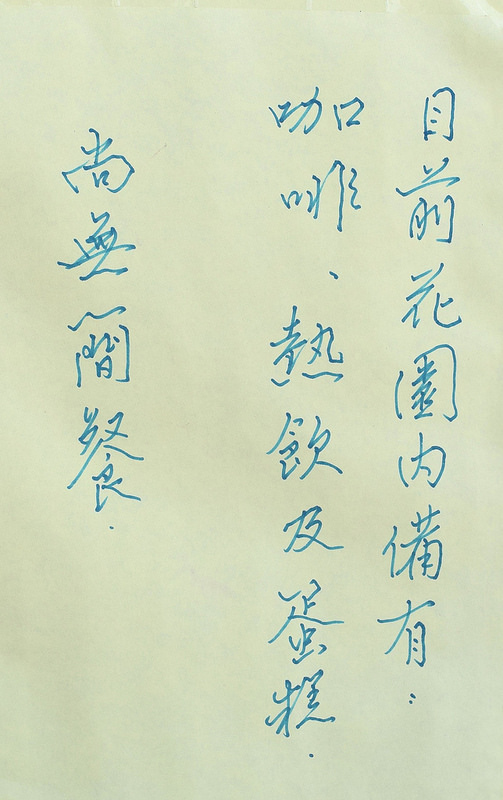 目前花園內備有：
咖啡、熱飲及蛋糕.
尚無簡餐.